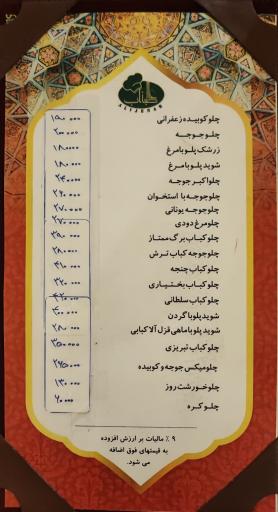 ALIJENAB
چلو کوبیده زعفرانی ۱۵۰۰۰۰
چلو جوجه ۲۰۰۰۰۰
زرشک پلو با مرغ ۱۸۰۰۰۰
شوید پلو با مرغ ۱۸۰۰۰۰
چلو اکبر جوجه ۲۴۰۰۰۰
چلو جوجه با استخوان ۲۶۰۰۰۰
چلو جوجه یونانی ۲۷۰۰۰۰
چلو مرغ دودی ۲۷۰۰۰۰
چلو کباب برگ ممتاز ۳۹۰۰۰۰
چلو جوجه کباب ترش ۲۸۰۰۰۰
چلو کباب چنجه ۴۱۰۰۰۰
چلو کباب بختیاری ۳۲۰۰۰۰
چلو کباب سلطانی ۴۲۰۰۰۰
شوید پلو با گردن ۴۰۰۰۰۰
شوید پلو با ماهی قزل آلا کبابی ۲۸۰۰۰۰
چلو کباب تبریزی ۳۵۰۰۰۰
چلو میکس جوجه و کوبیده ۲۷۵۰۰۰
چلو خورشت روز ۱۳۰۰۰۰
چلو کره ۶۰۰۰۰
۹ ٪ مالیات بر ارزش افزوده
به قیمتهای فوق اضافه
می شود.